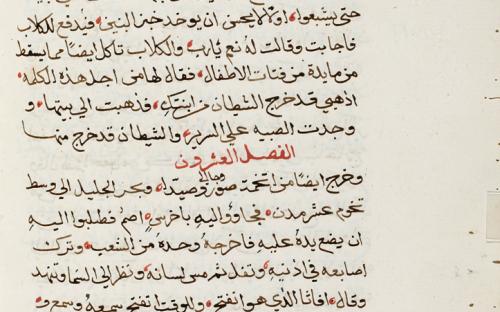 حتى يشبعوا اولا لا يحسن ان يوخد خبز البنين فيدفع للكلاب
فاجابت وقالت له نعم يارب والكلاب تاكل ايضا مما يسقط
من مايدة من فتات الاطفال فقال لها من اجل هذه الكلمه
اذهبي قد خرج الشيطان من ابنتكِ فذهبت الي بيتها و
وجدت الصبيه علي السرير والشيطان قد خرج منها
الفصل العشرون
وخرج ايضا من اتخمة صور وماالي وصيدا وبحر الجليل الي وسط
تخوم عشر مدن فجاؤو اليه باخرس اصم فطلبوا اليه
ان يضع يده عليه فاخرجه وحده من الشعب وترك
اصابعه في اذنيه وتفل ثم مس لسانه ونظر الي السما وتنهد
وقال افاثا الذي هو انفتح وللوقت انفتح سمعه وسمع و